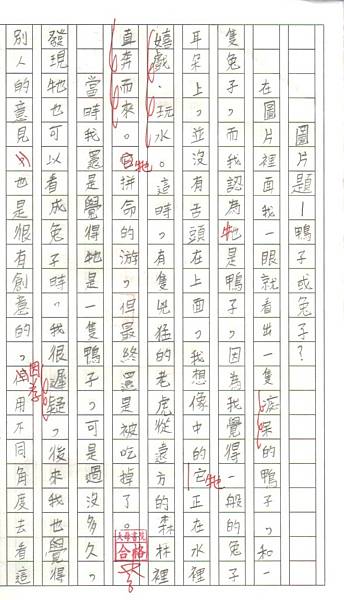 圖片題—鴨子或兔子?
在圖片裡面我一眼就看出一隻的鴨子,和一
隻兔子,而我認為牠是鴨子,因為我覺得一般的兔子
耳朵上,並沒有舌頭在上面,我想像中的它牠正在水裡
嬉戲、玩水。這時,有隻兇猛的老虎從遠方的森林裡
直奔而來。牠拼命的游,但最終還是被吃掉了。
合格
當時我還是覺得牠是一隻鴨子,可是過沒多久,
發現牠也可以看成兔子時,我很遲疑,後來我也覺得
別人的意見也是很有創意的,因為用不同角度去看這